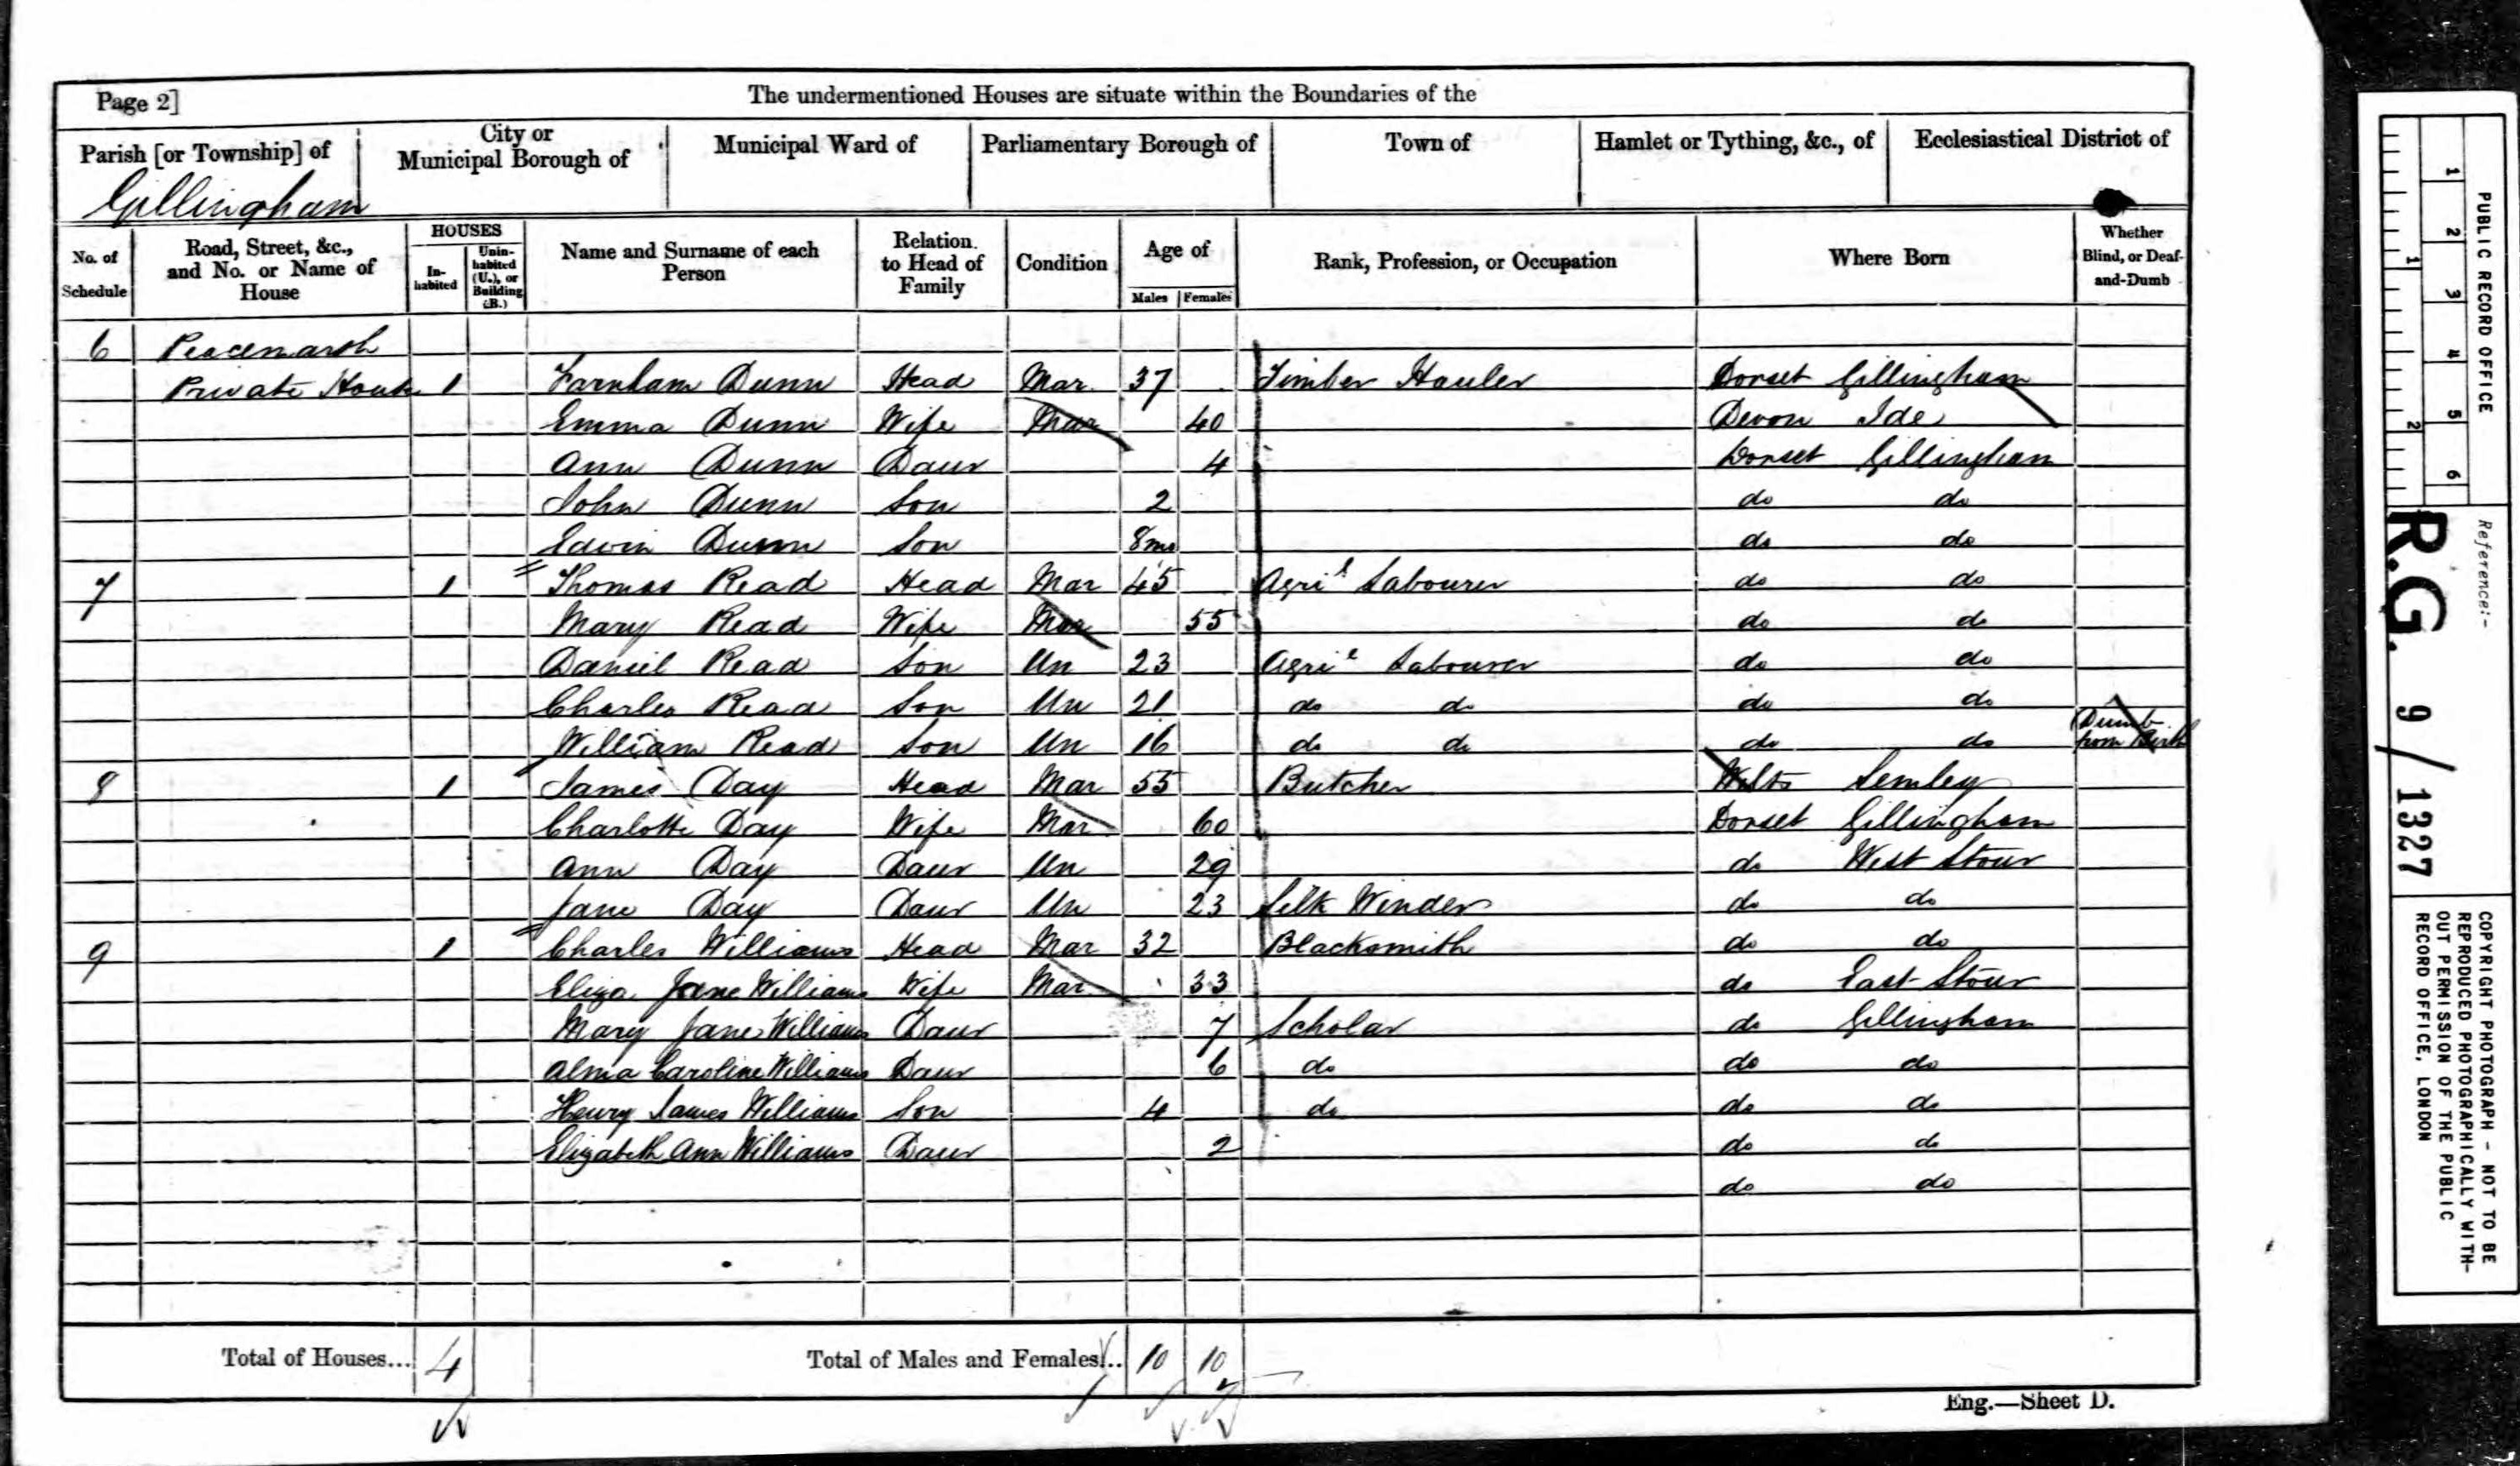 Page 2]
The undermentioned Houses are situate within the Boundaries of the
Parish [or Township] of
Gillingham
City or Municipal Borough of
Municipal Ward of
Parliamentary Borough of
Town of
Hamlet or Tything, &c., of
Ecclesiastical District of
No. of Schedule
Road, Street, &c., and No. or Name of House
HOUSES
In-habited
Unin-habited (U.), or Building (B.)
Name and Surname of each Person
Relation to Head of Family
Condition
Age of
Males Females
Rank, Profession, or Occupation
Where Born
Whether Blind, or Deaf-and-Dumb
6 Peacemarsh
Private House 1 Farnham Dunn Head Mar 37 Timber Hauler Dorset Gillingham
Emma Dunn Wife Mar 40 Devon Ide
Ann Dunn Daur 4 Dorset Gillingham
John Dunn Son 2 do do
Edwin Dunn Son 8 mo do do
7 1 Thomas Read Head Mar 45 Agril Labourer do do
Mary Read Wife Mar 55 do do
Daniel Read Son Un 23 Agril Labourer do do
Charles Read Son Un 21 do do do do
William Read Son Un 16 do do do do Dumb from Birth
8 1 James Day Head Mar 55 Butcher Wilts Semley
Charlotte Day Wife Mar 60 Dorset Gillingham
Ann Day Daur Un 29 do West Stour
Jane Day Daur Un 23 Silk Winder do do
9 1 Charles Williams Head Mar 32 Blacksmith do do
Eliza Jane Williams Wife Mar 33 do East Stour
Mary Jane Williams Daur 7 Scholar do Gillingham
Alma Caroline Williams Daur 6 do do do
Henry James Williams Son 4 do do do
Elizabeth Ann Williams Daur 2 do do
do do
Total of Houses... 4
Total of Males and Females... 10 10
Eng.—Sheet D.
PUBLIC RECORD OFFICE
1 2 3 4 5 6
1 2
Reference:-
R.G. 9/1327
COPYRIGHT PHOTOGRAPH - NOT TO BE
REPRODUCED PHOTOGRAPHICALLY WITH-
OUT PERMISSION OF THE PUBLIC
RECORD OFFICE, LONDON